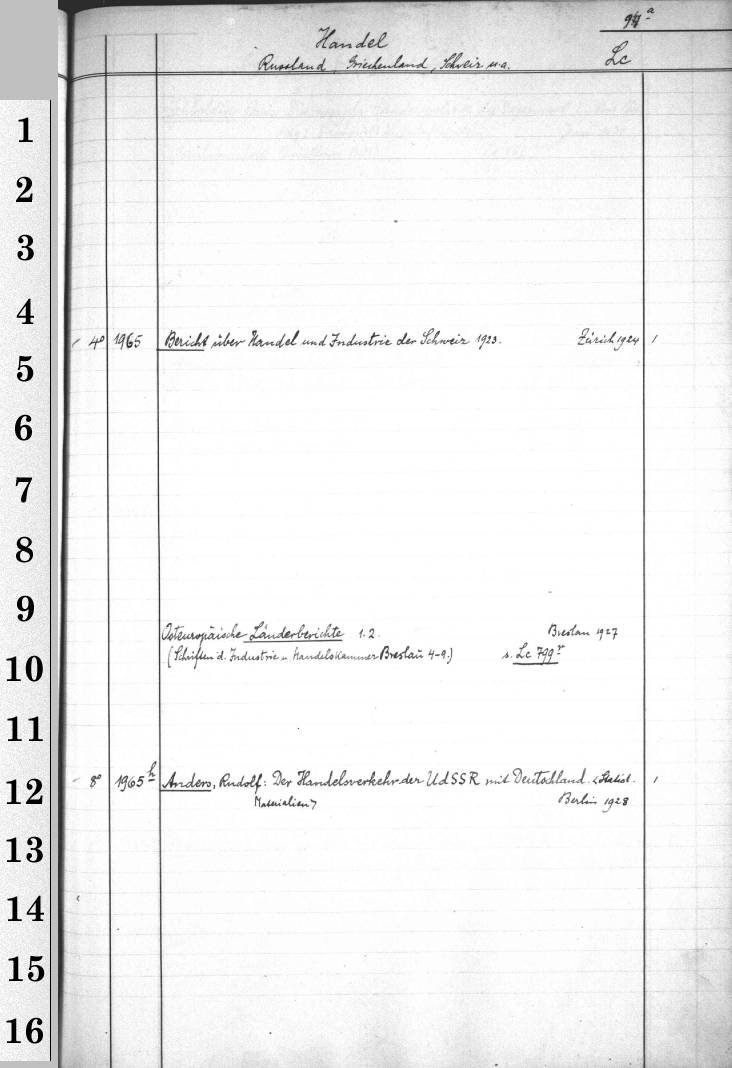 94a
Handel
Russland, Griechenland, Schweiz u.a.
Lc
1
2
3
4
4° 1965 Bericht über Handel und Industrie der Schweiz 1923. Zürich 1924 1
5
6
7
8
9
Osteuropäische Länderberichte 1.2. Breslau 1927
(Schriften d. Industrie u. Handelskammer Breslau 4-9.) s. Lc 799r
10
11
8° 1965h Anders, Rudolf: Der Handelsverkehr der UdSSR mit Deutschland. <Statist. 1
12
Materialien> Berlin 1928
13
14
15
16